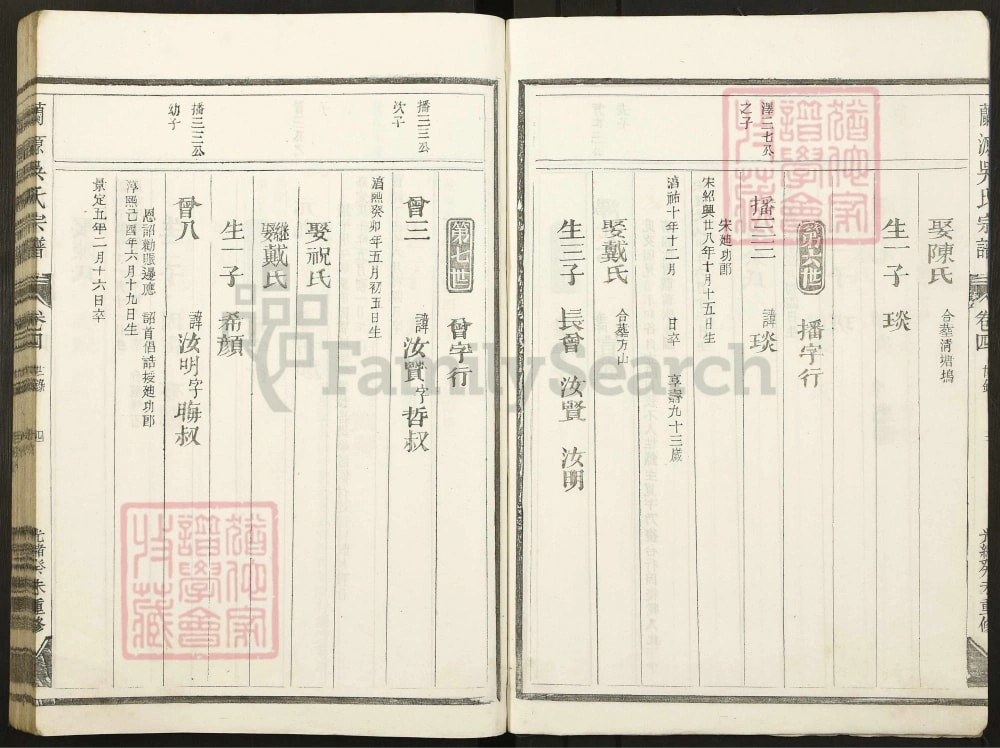 蘭源吳氏宗譜 卷四 世錄
光緒癸未重修
娶陳氏 合墓清塘塢
生一子 琰
第六世 播字行
澤二七公之子
播三三 諱琰
宋廸功郎
宋紹興廿八年十月十五日生
淳祐十年十二月 日卒 享壽九十三歲
娶戴氏 合墓方山
生三子 長會 汝賢 汝明
第七世 曾字行
播三三公次子
曾三 諱汝賢字哲叔
淳熈癸卯年五月初五日生
娶祝氏
繼娶戴氏
生一子 希顔
播三三公幼子
曾八 諱汝明字晦叔
恩詔勸賑邊應 詔首倡誥授廸功郎
淳熈己酉年六月十九日生
景定五年二月十六日卒
蘭源吳氏宗譜 卷四 世錄 四
光緒癸未重修
FamilySearch